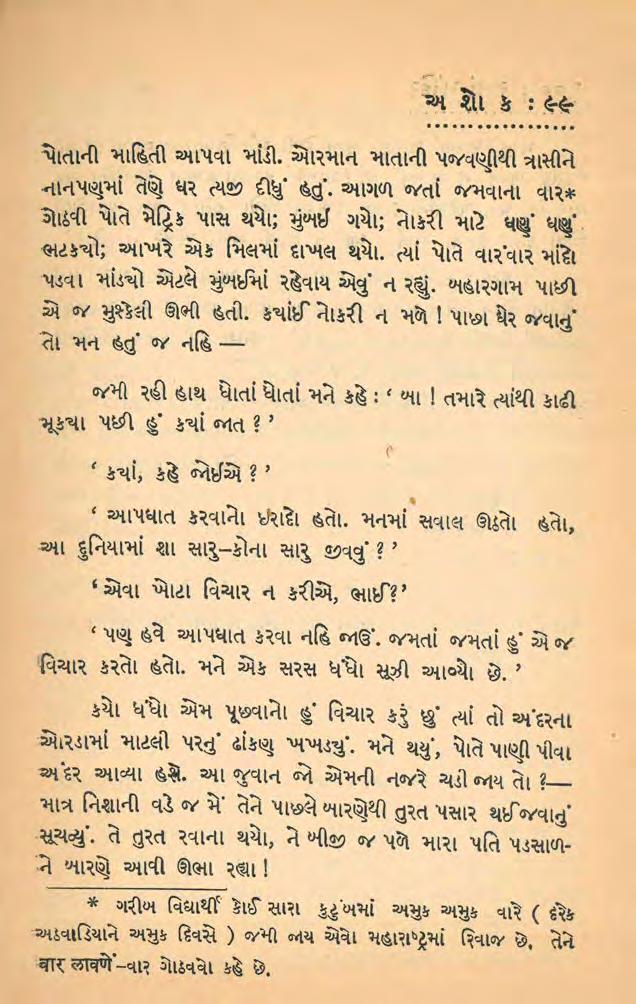 અ શો ક : ૯૯
પોતાની માહિતી આપવા માંડી. ઓરમાન માતાની પજવણીથી ત્રાસીને
નાનપણમાં તેણે ઘર ત્યજી દીધું હતું. આગળ જતાં જમવાના વાર*
ગોઠવી પોતે મેટ્રિક પાસ થયો; મુંબઈ ગયો; નોકરી માટે ઘણું ઘણું
ભટક્યો; આખરે એક મિલમાં દાખલ થયો. ત્યાં પોતે વારંવાર માંદો
પડવા માંડ્યો એટલે મુંબઈમાં રહેવાય એવું ન રહ્યું. બહારગામ પાછી
એ જ મુશ્કેલી ઊભી હતી. ક્યાંઈ નોકરી ન મળે ! પાછા ઘેર જવાનું
તો મન હતું જ નહિ —
જમી રહી હાથ ધોતાં ધોતાં મને કહે : ‘ બા ! તમારે ત્યાંથી કાઢી
મૂક્યા પછી હું ક્યાં જાત ? ’
‘ ક્યાં, કહે જોઈએ ? ’
‘ આપઘાત કરવાનો ઇરાદો હતો. મનમાં સવાલ ઊઠતો હતો,
આ દુનિયામાં શા સારુ–કોના સારુ જીવવું ? ’
‘ એવા ખોટા વિચાર ન કરીએ, ભાઈ?’
‘ પણ હવે આપઘાત કરવા નહિ જાઉં. જમતાં જમતાં હું એ જ
વિચાર કરતો હતો. મને એક સરસ ધંધો સૂઝી આવ્યો છે. ’
કયો ધંધો એમ પૂછવાનો હું વિચાર કરું છું ત્યાં તો અંદરના
ઓરડામાં માટલી પરનું ઢાંકણ ખખડ્યું. મને થયું, પોતે પાણી પીવા
અંદર આવ્યા હશે. આ જુવાન જો એમની નજરે ચડી જાય તો ?—
માત્ર નિશાની વડે જ મેં તેને પાછલે બારણેથી તુરત પસાર થઈ જવાનું
સૂચવ્યું. તે તુરત રવાના થયો, ને બીજી જ પળે મારા પતિ પડસાળ-
ને બારણે આવી ઊભા રહ્યા !
* ગરીબ વિદ્યાર્થી કોઈ સારા કુટુંબમાં અમુક અમુક વારે ( દરેક
અઠવાડિયાને અમુક દિવસે ) જમી જાય એવો મહારાષ્ટ્રમાં રિવાજ છે. તેને
वार लावणें–વાર ગોઠવવો કહે છે.